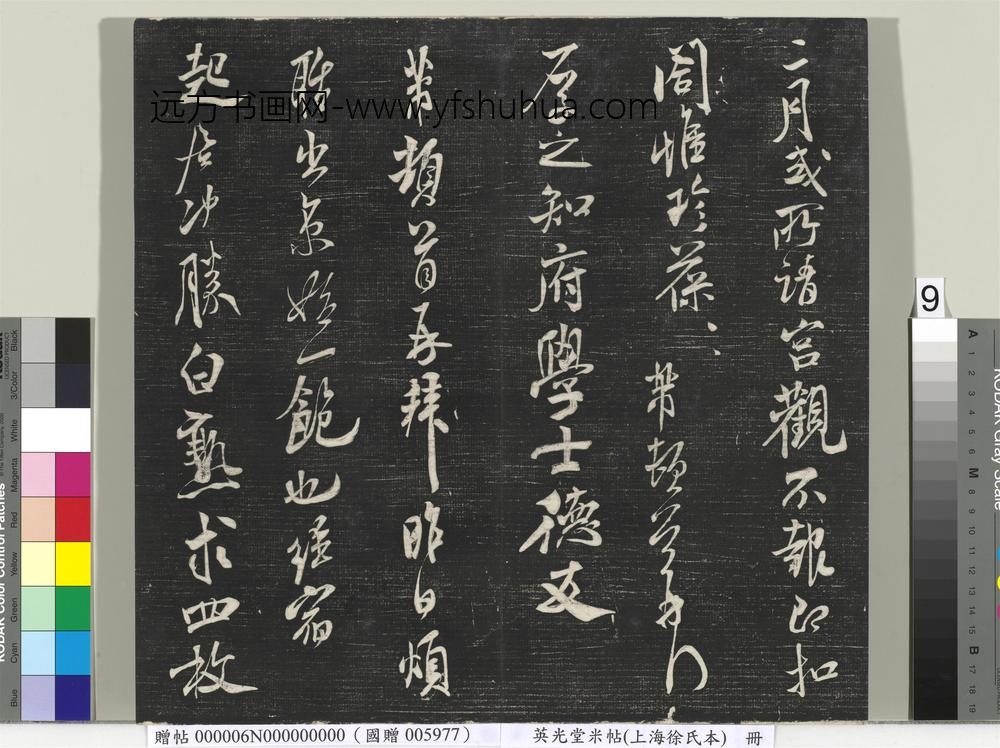 二月或再請宮觀不報即扣
閤惟珍葆、芾頓首再行
原之知府學士德友
芾頓首再拜昨日煩
陛出京始一飽也經宿
起居冲勝白熟求四枚
远方书画网-www.yfshuhua.com
9
贈帖 000006N000000000（國贈 005977）
英光堂米帖(上海徐氏本) 冊
KODAK Color Control Patches
Blue
Cyan
Green
Yellow
Red
Magenta
White
3/Color
Black
KODAK Gray Scale
A
1
2
3
4
5
6
M
8
9
10
11
12
13
14
15
B
17
18
19